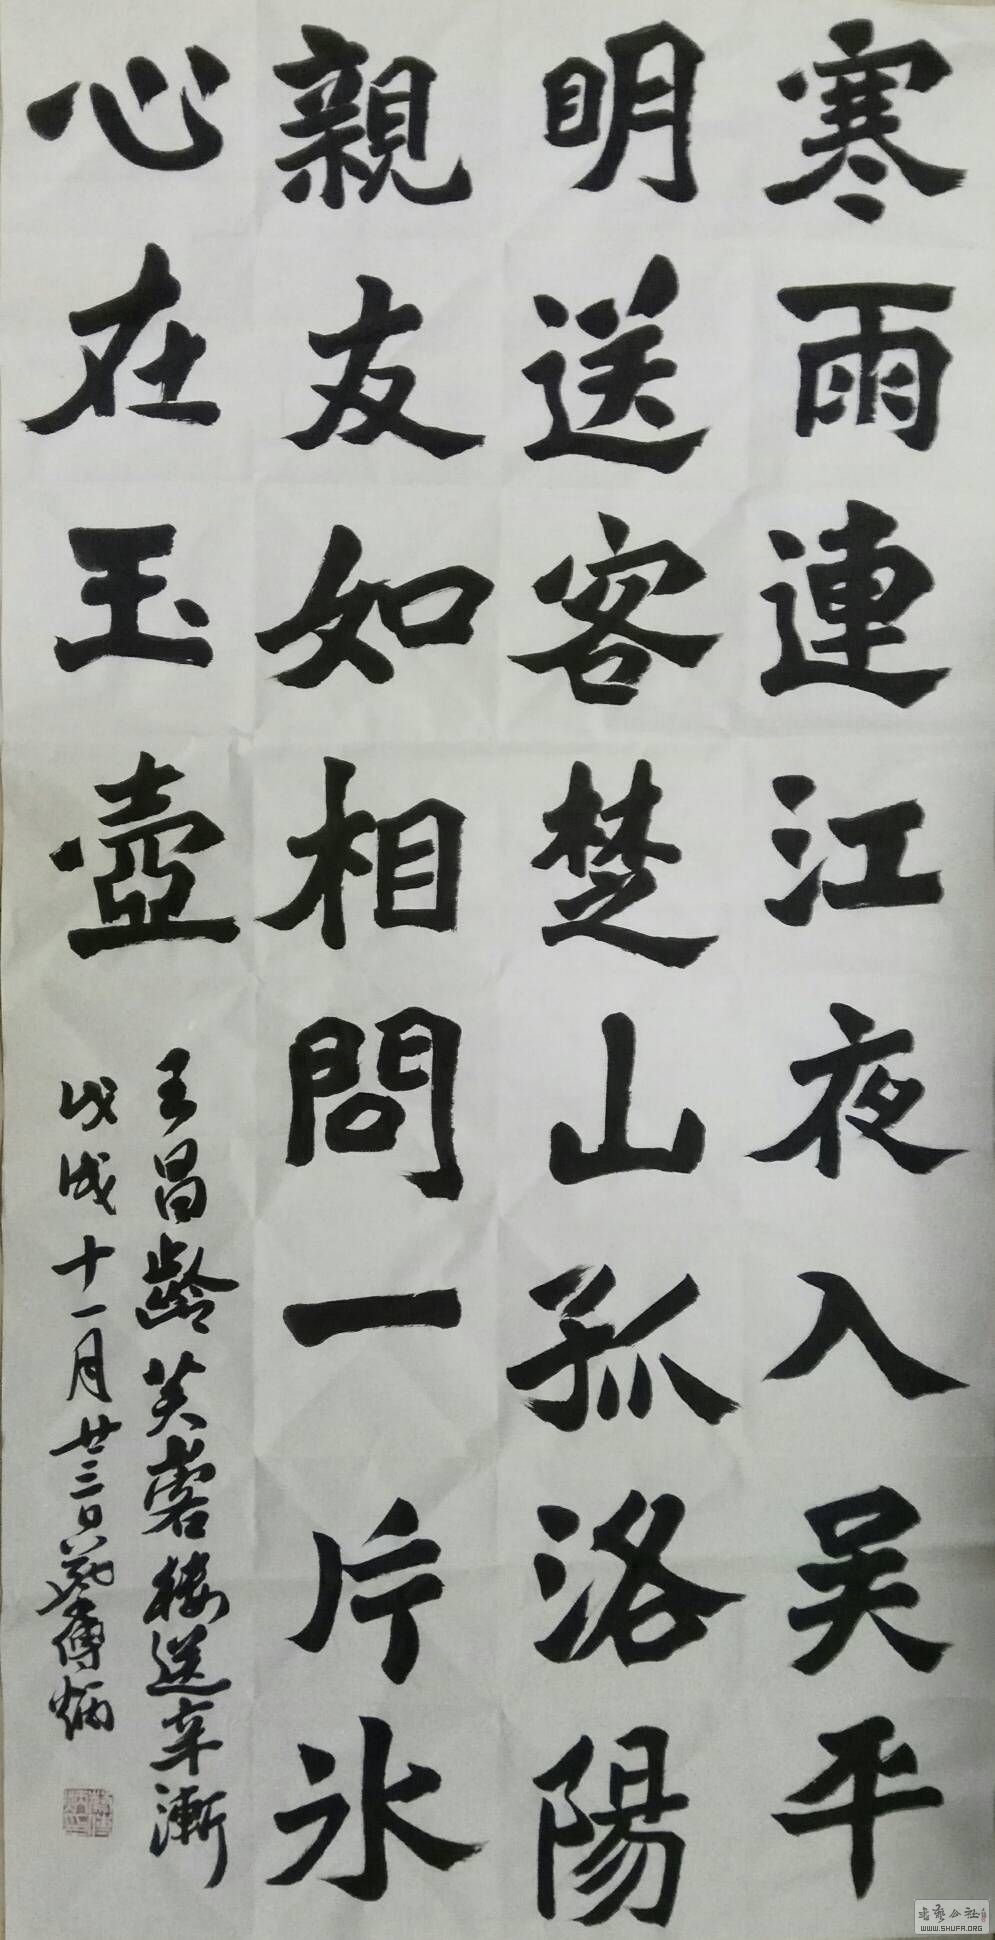 寒雨連江夜入吴平
明送客楚山孤洛陽
親友如相問一片冰
心在玉壺
王昌齡芙蓉樓送辛漸
戊戌十一月廿三日 傳炳
书艺公社
WWW.SHUFA.ORG